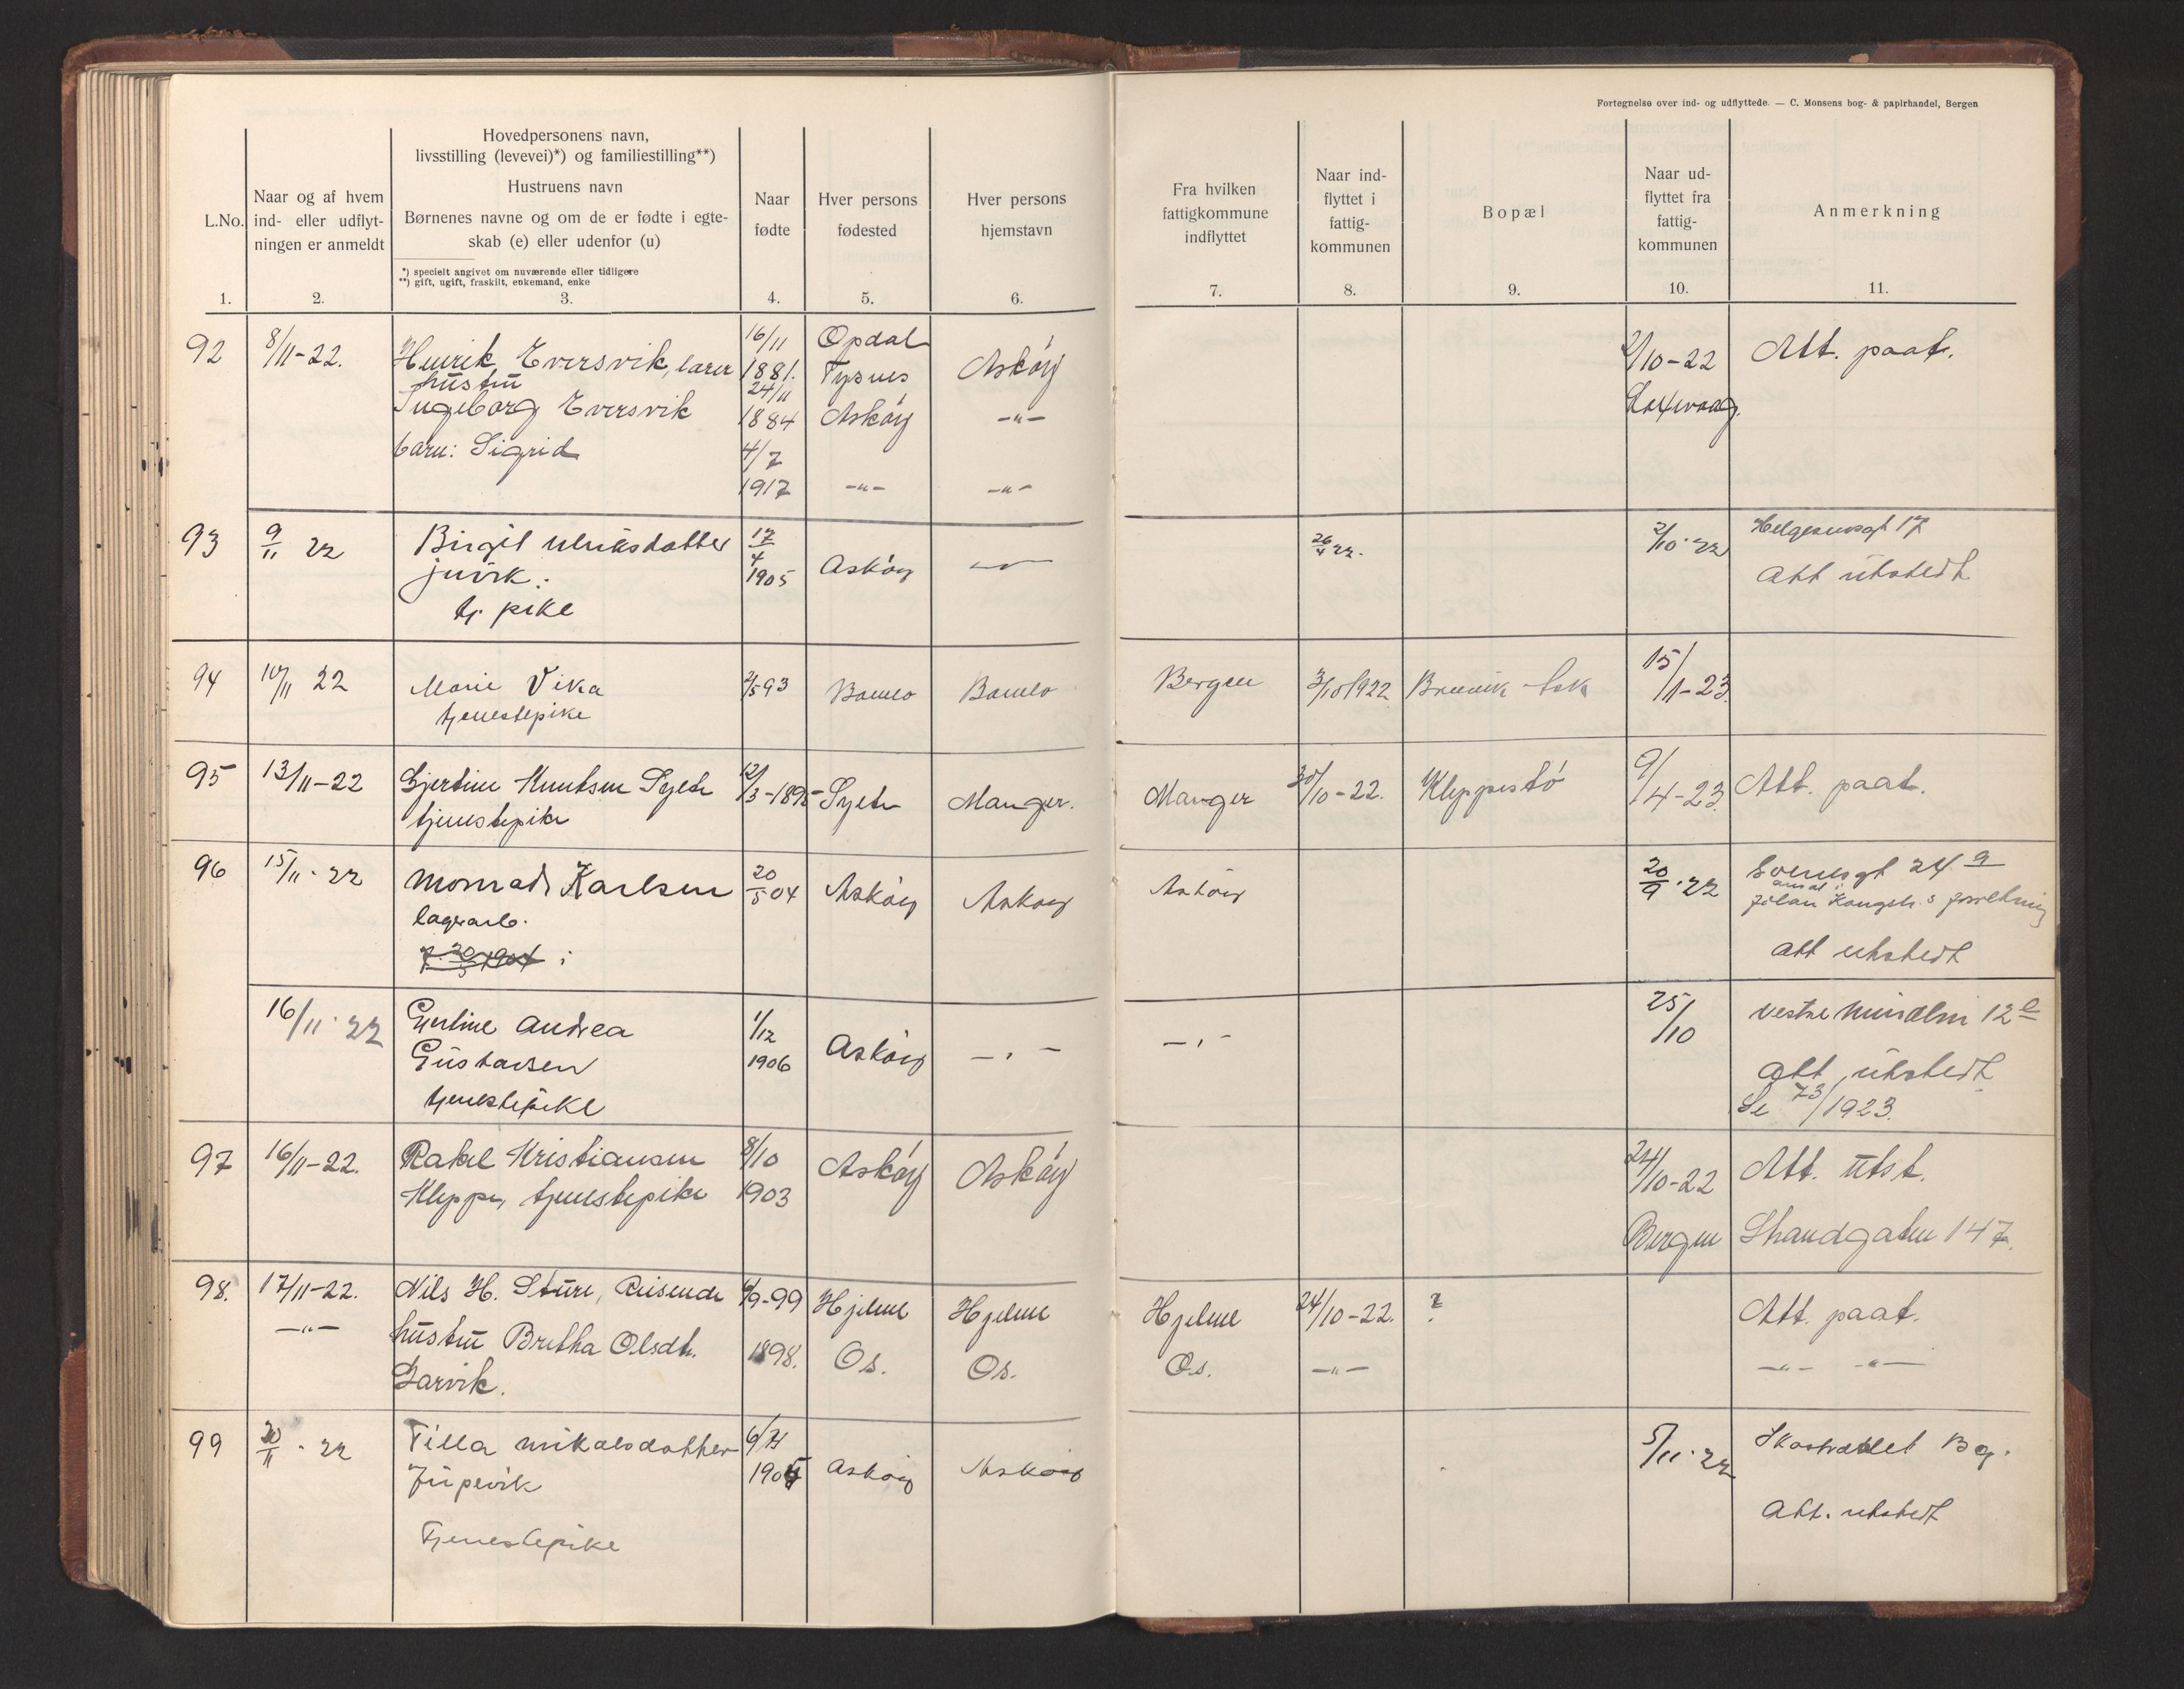 Fortegnelse over ind- og udflyttede. — C. Monsens bog- & papirhandel, Bergen
L.No.
1.
Naar og af hvem
ind- eller udflyt-
ningen er anmeldt
2.
Hovedpersonens navn,
livsstilling (levevei)*) og familiestilling**)
Hustruens navn
Børnenes navne og om de er fødte i egte-
skab (e) eller udenfor (u)
*) specielt angivet om nuværende eller tidligere
**) gift, ugift, fraskilt, enkemand, enke
3.
Naar
fødte
4.
Hver persons
fødested
5.
Hver persons
hjemstavn
6.
Fra hvilken
fattigkommune
indflyttet
7.
Naar ind-
flyttet i
fattig-
kommunen
8.
Bopæl
9.
Naar ud-
flyttet fra
fattig-
kommunen
10.
Anmerkning
11.
92 8/11-22. Henrik Eversvik, lærer 16/11 1881. Opdal Tysnes Askøy 2/10-22 Att. paat.
hustru
Ingeborg Eversvik 24/11 1884 Askøy -"- Laxevaag.
barn: Sigrid 4/7 1917 -"- -"-
93 9/11 22 Birgit Ulriksdatter 17/4 1905 Askøy 26/4 22. 2/10-22 Helgesensgt 17
Juvik. Att utstedt
tj. pike
94 10/11 22 Marie Vika 2/5 93 Bømlo Bømlo Bergen 3/10 1922 15/1-23.
tjenestepike
95 13/11-22 Gjertine Knutsen Sylta 12/3-1895 Manger. Manger 30/10-22. Kleppestø 9/4-23. Att. paat.
tjenestepike
96 15/11-22 Monrad Karlsen 20/5 04 Askøy Askøy Askøy 20/9-22 24 a
lagerarb.
att utstedt
16/11-22 Gjertine Andrea 1/12 1906 Askøy - " - - " - 25/10 Vestre 12 e
Gustavsen Att utstedt
tjenestepike Se 73/1923.
97 16/11-22. Rakel Kristiansen 8/10 1903 Askøy Askøy 24/10-22 Att. utst.
Kleppe, tjenestepike Bergen Strandgaten 147.
98. 17/11-22. Nils H. Sture, Reisende 4/9-99 Hjelme Hjelme Hjelme 24/10-22. ? Att. paat.
-"- hustru Bretha Olsdt. 1898. Os. Os. Os. -"- -"- -"-
99 20/11-22 Tilla Mikalsdatter Askøy Askøy 5/11-22 Bg.
Jupevik
Tjenestepike Att. utstedt